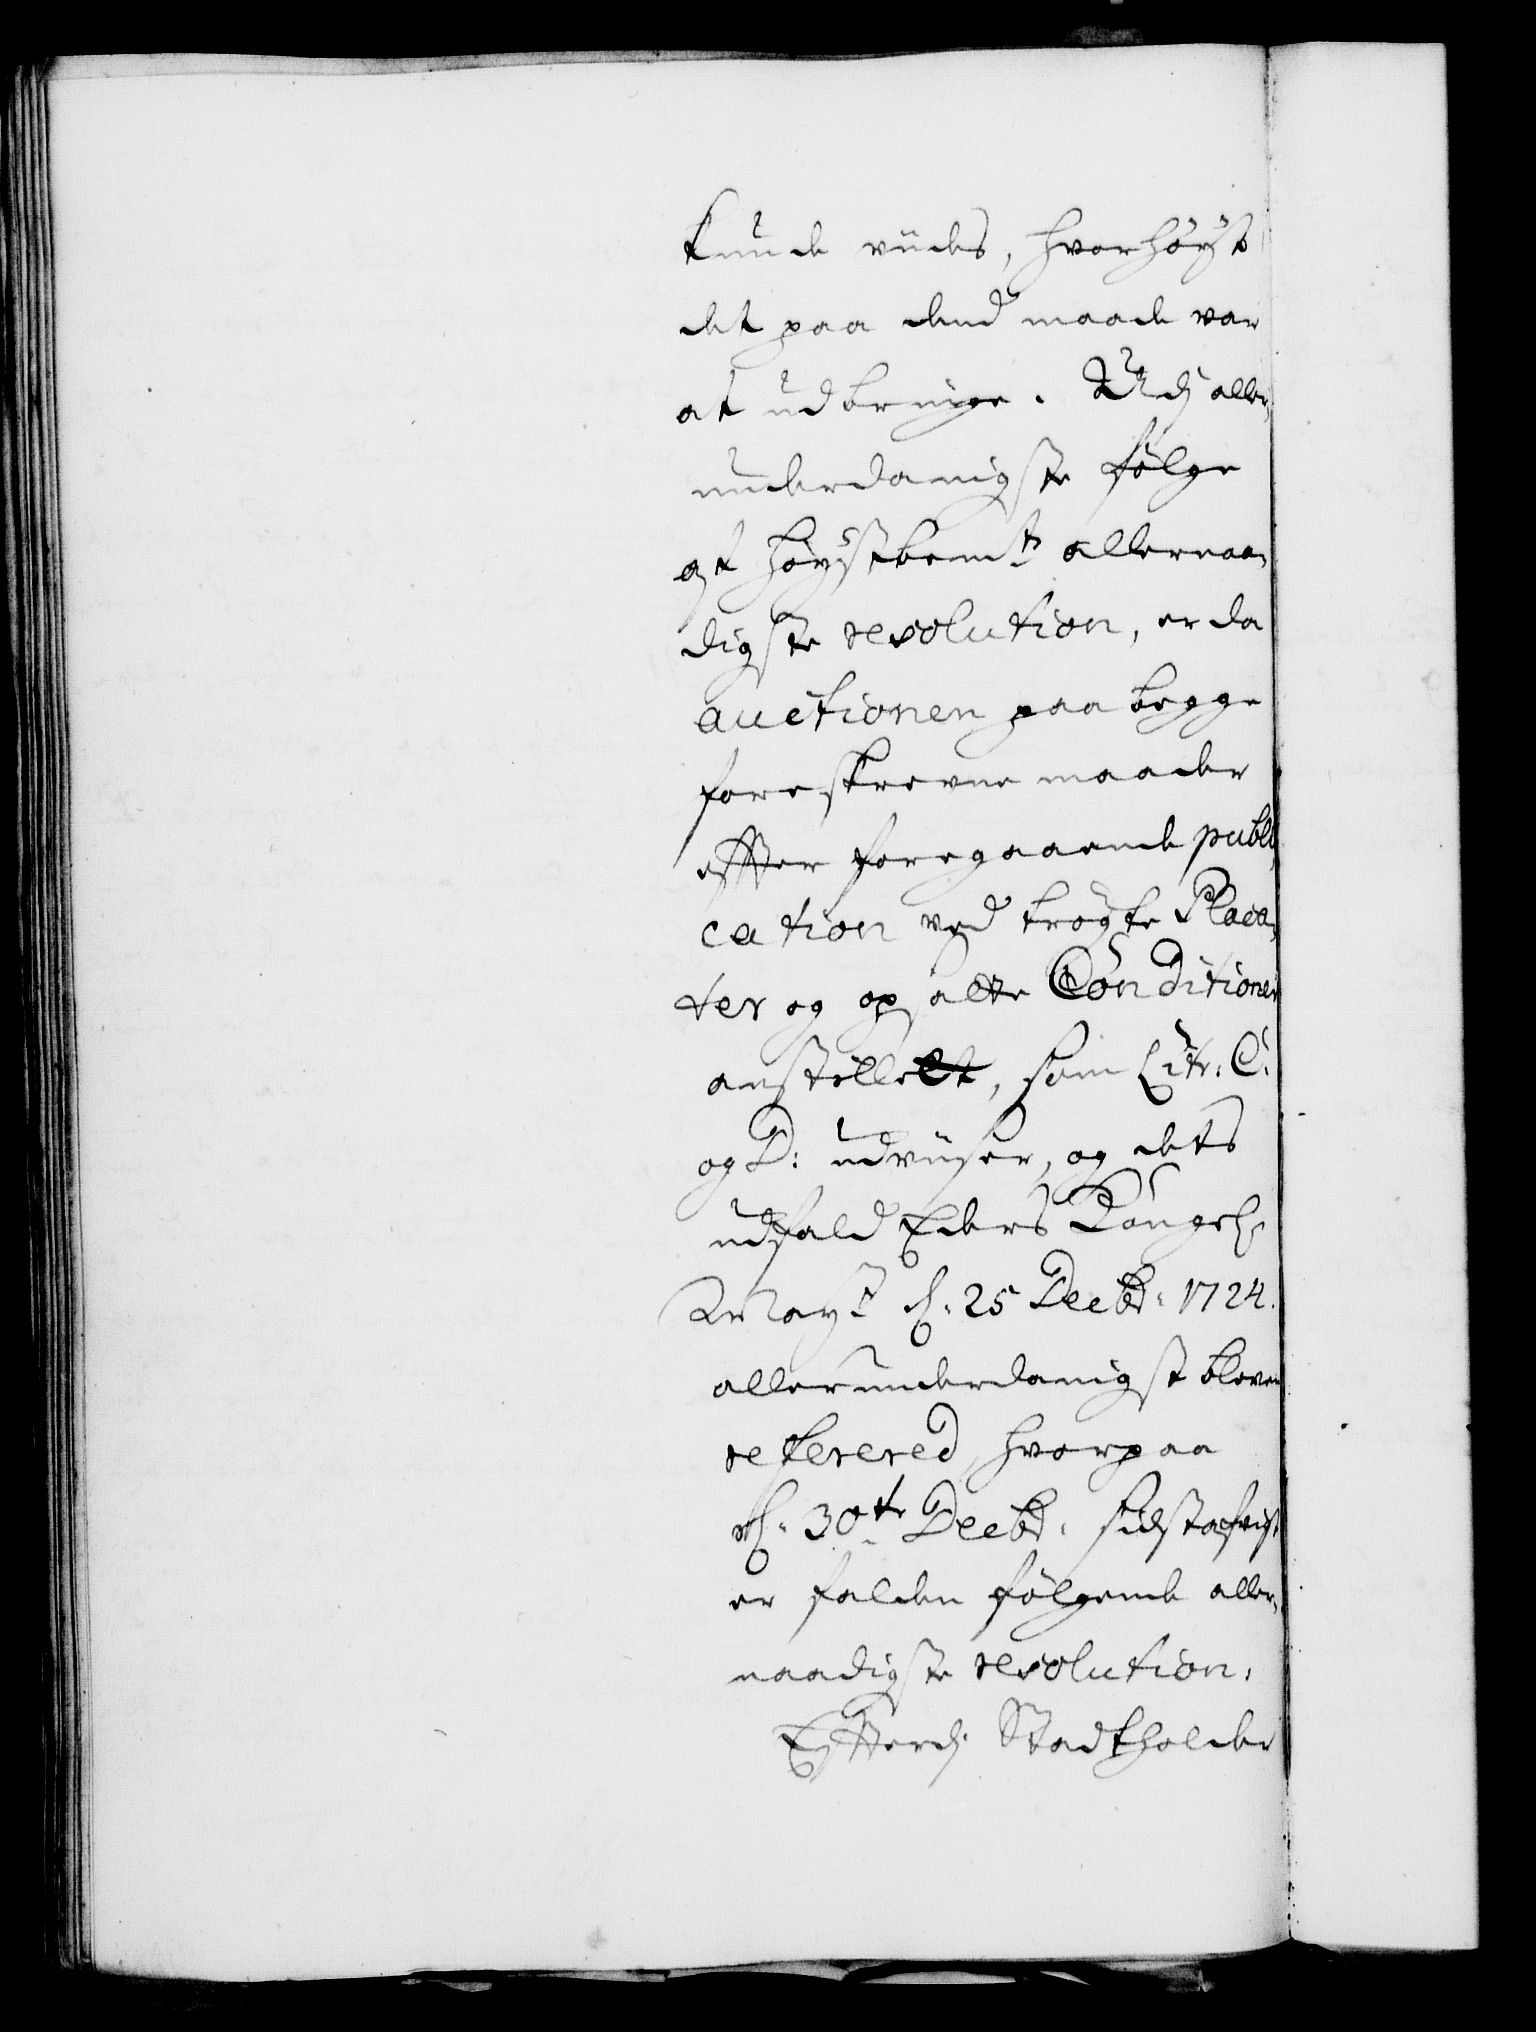 kunde viides, hvor høyt
det paa dend maade var
at udbringe. Udj aller¬
underdanigste følge
af høystbemte allernaa¬
digste resolution, er da
auctionen paa begge
foreskrevne maader
effter foregaaende publi¬
cation ved trøgte Placa¬
ter og opsatte Conditioner
anstillet, som Litr: C:
og D: udviiser, og dets
udfald Eders Kongel:
Mayt d: 25 Decbr: 1724.
allerunderdanigst bleven
refereret, hvorpaa
d: 30te Decbr: sidstafvigt
er falden følgende aller¬
naadigste resolution:
Effterdj Stadtholder